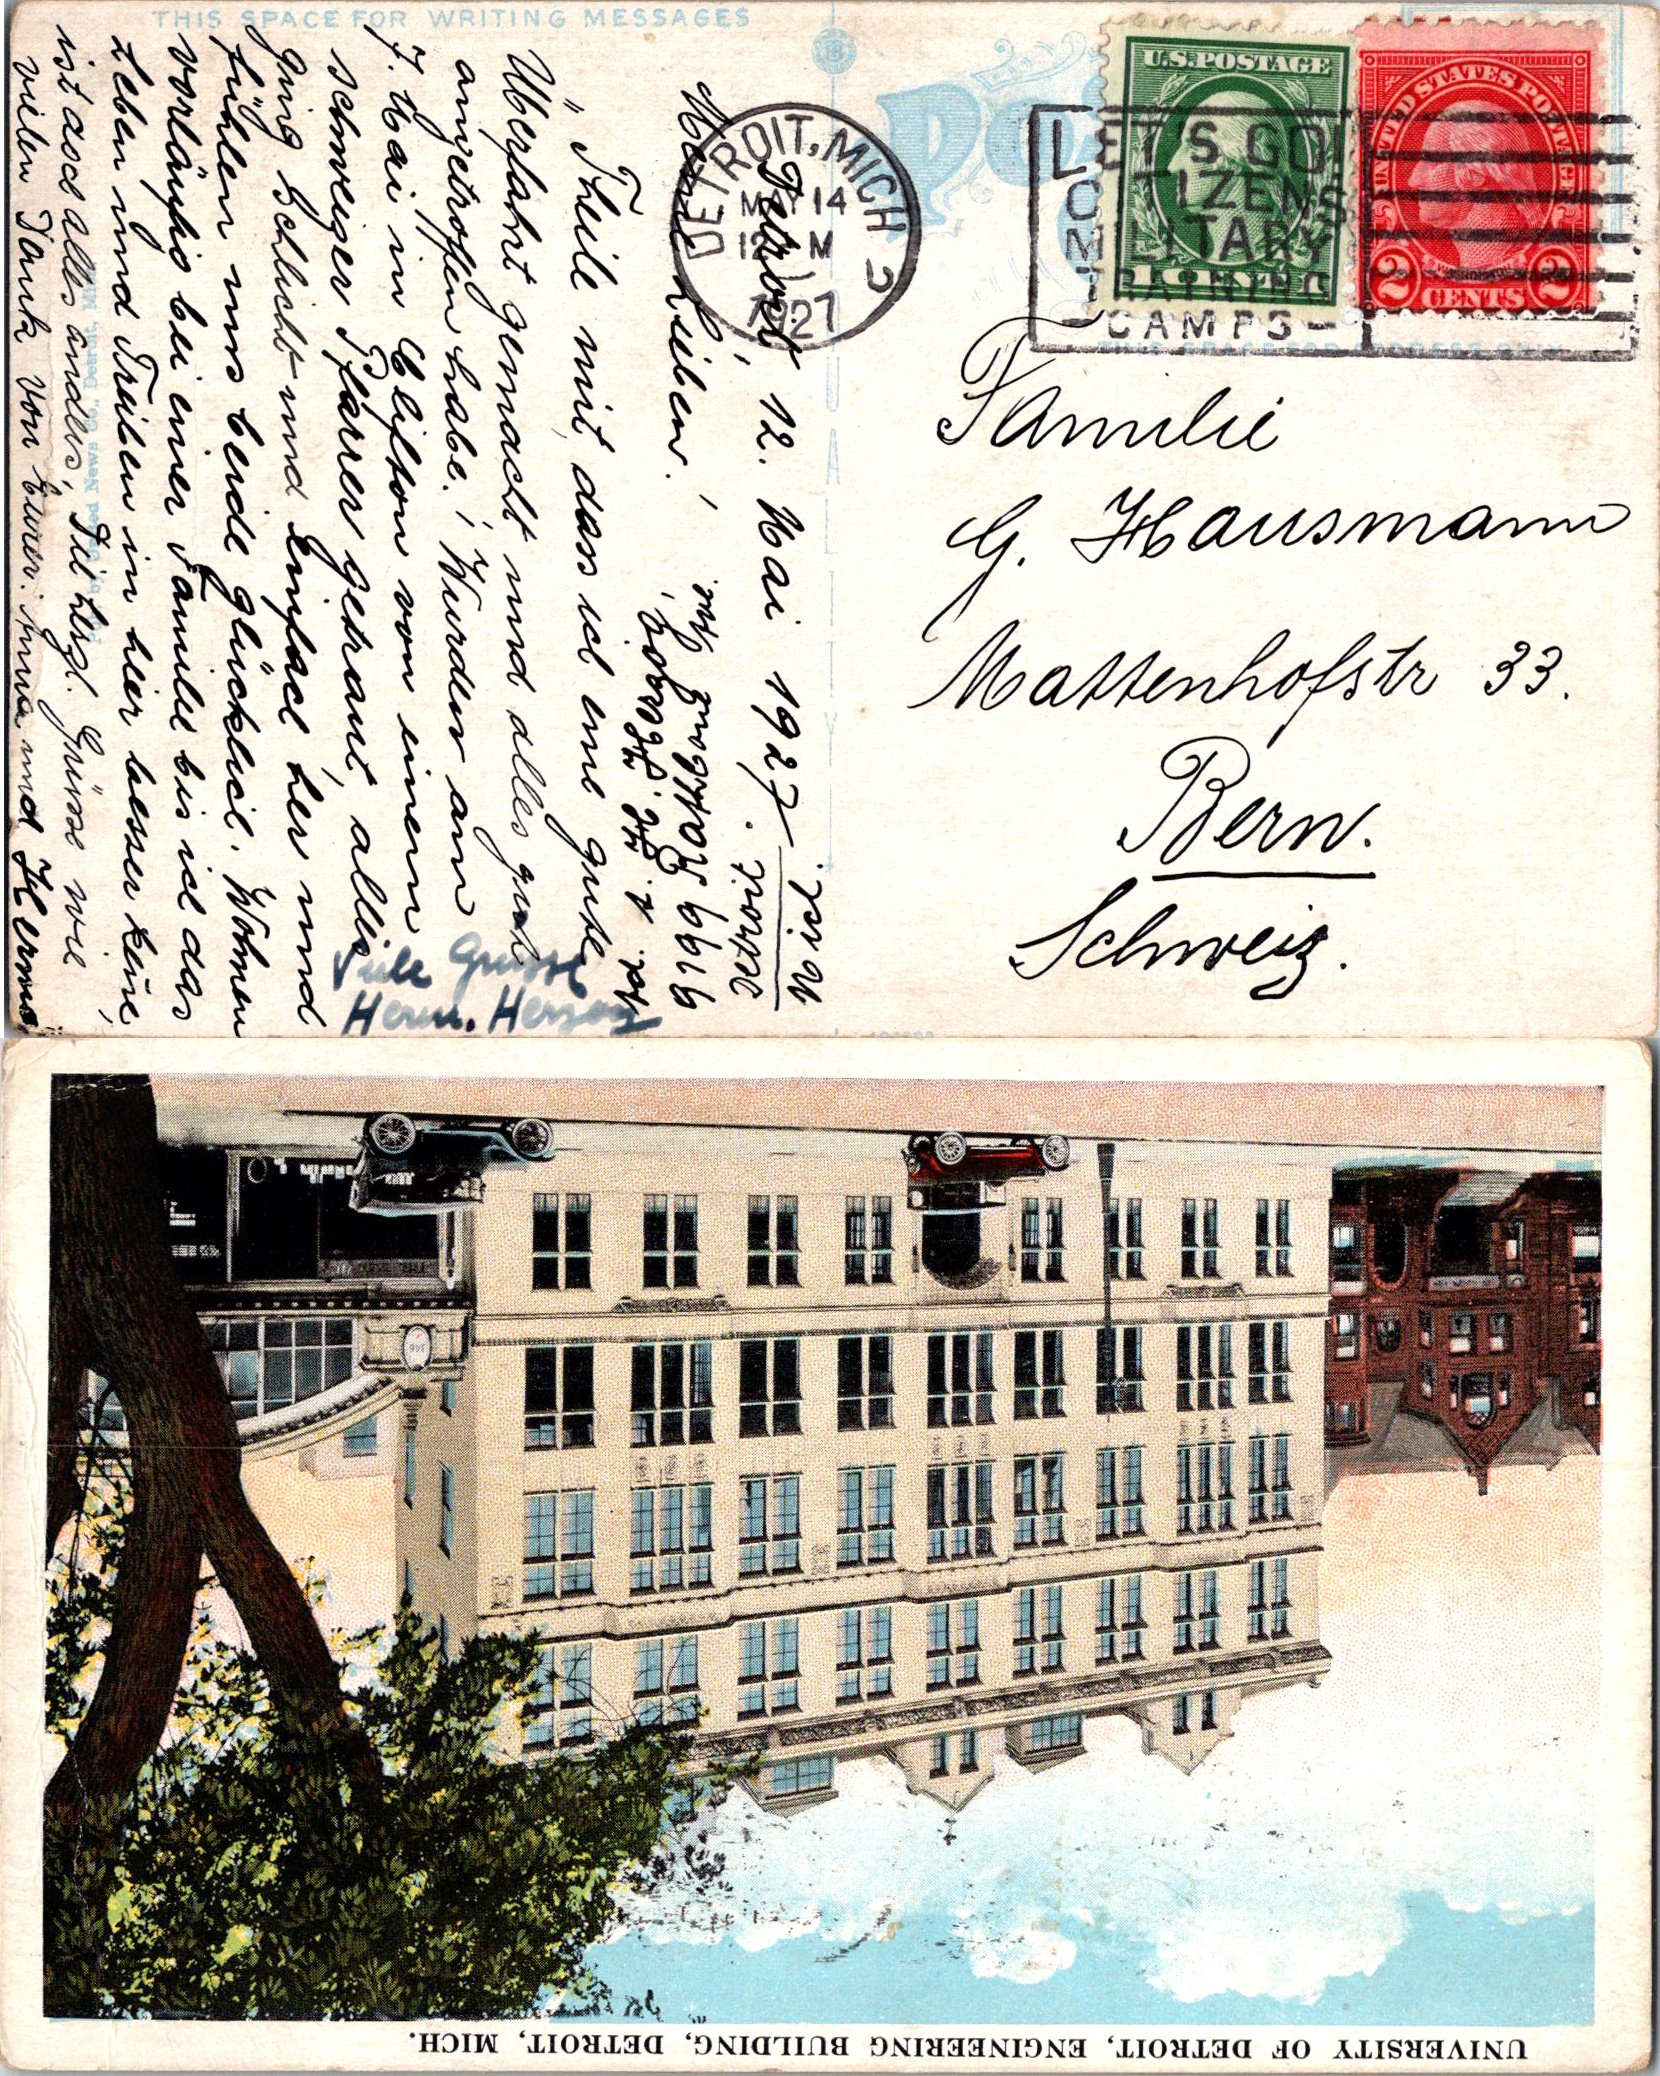 THIS SPACE FOR WRITING MESSAGES
Detroit, 12. Mai 1927.
Meine Lieben!
Theile mit, dass ich eine gute
Überfahrt gemacht und alles gut
angetroffen habe. Wurden am
7. Mai in Clifton von einem
schweizer Pfarrer getraut, alles
ging schlicht und einfach her und
fühlen uns beide glücklich. Wohnen
vorläufig bei einer Familie bis ich das
Leben und Treiben in hier besser kenne,
ist doch alles anders. Die herzl. Grüsse wie
vielen Dank von Eurer Anna und Hermann
Viele Grüsse
Herm. Herzog
Adr. H. Herzog,
9199 Rathbone Ave.
Detroit
Mich.
DETROIT, MICH
MAY 14
12 M
1927
2
LET'S GO!
CITIZENS
MILITARY
TRAINING
CAMPS
U.S. POSTAGE
1 CENT 1
UNITED STATES POSTAGE
2 CENTS 2
Familie
G. Hausmann
Mattenhofstr 33.
Bern.
Schweiz.
UNIVERSITY OF DETROIT, ENGINEERING BUILDING, DETROIT, MICH.